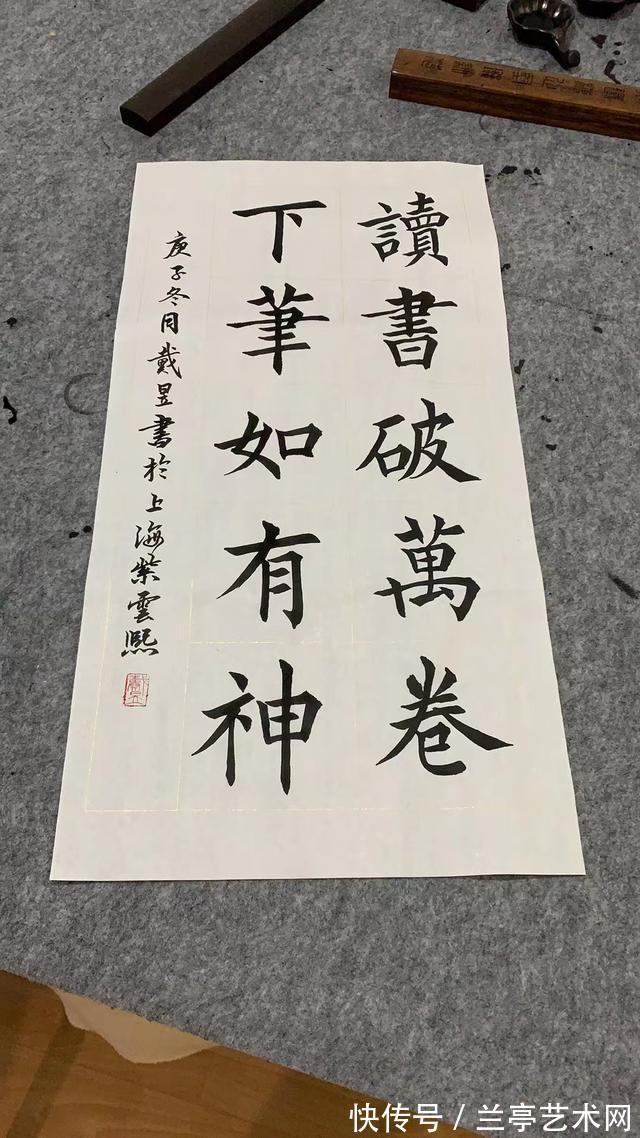 讀書破萬卷
下筆如有神
庚子冬月戴昱書於上海紫雲熙
快传号 / 兰亭艺术网